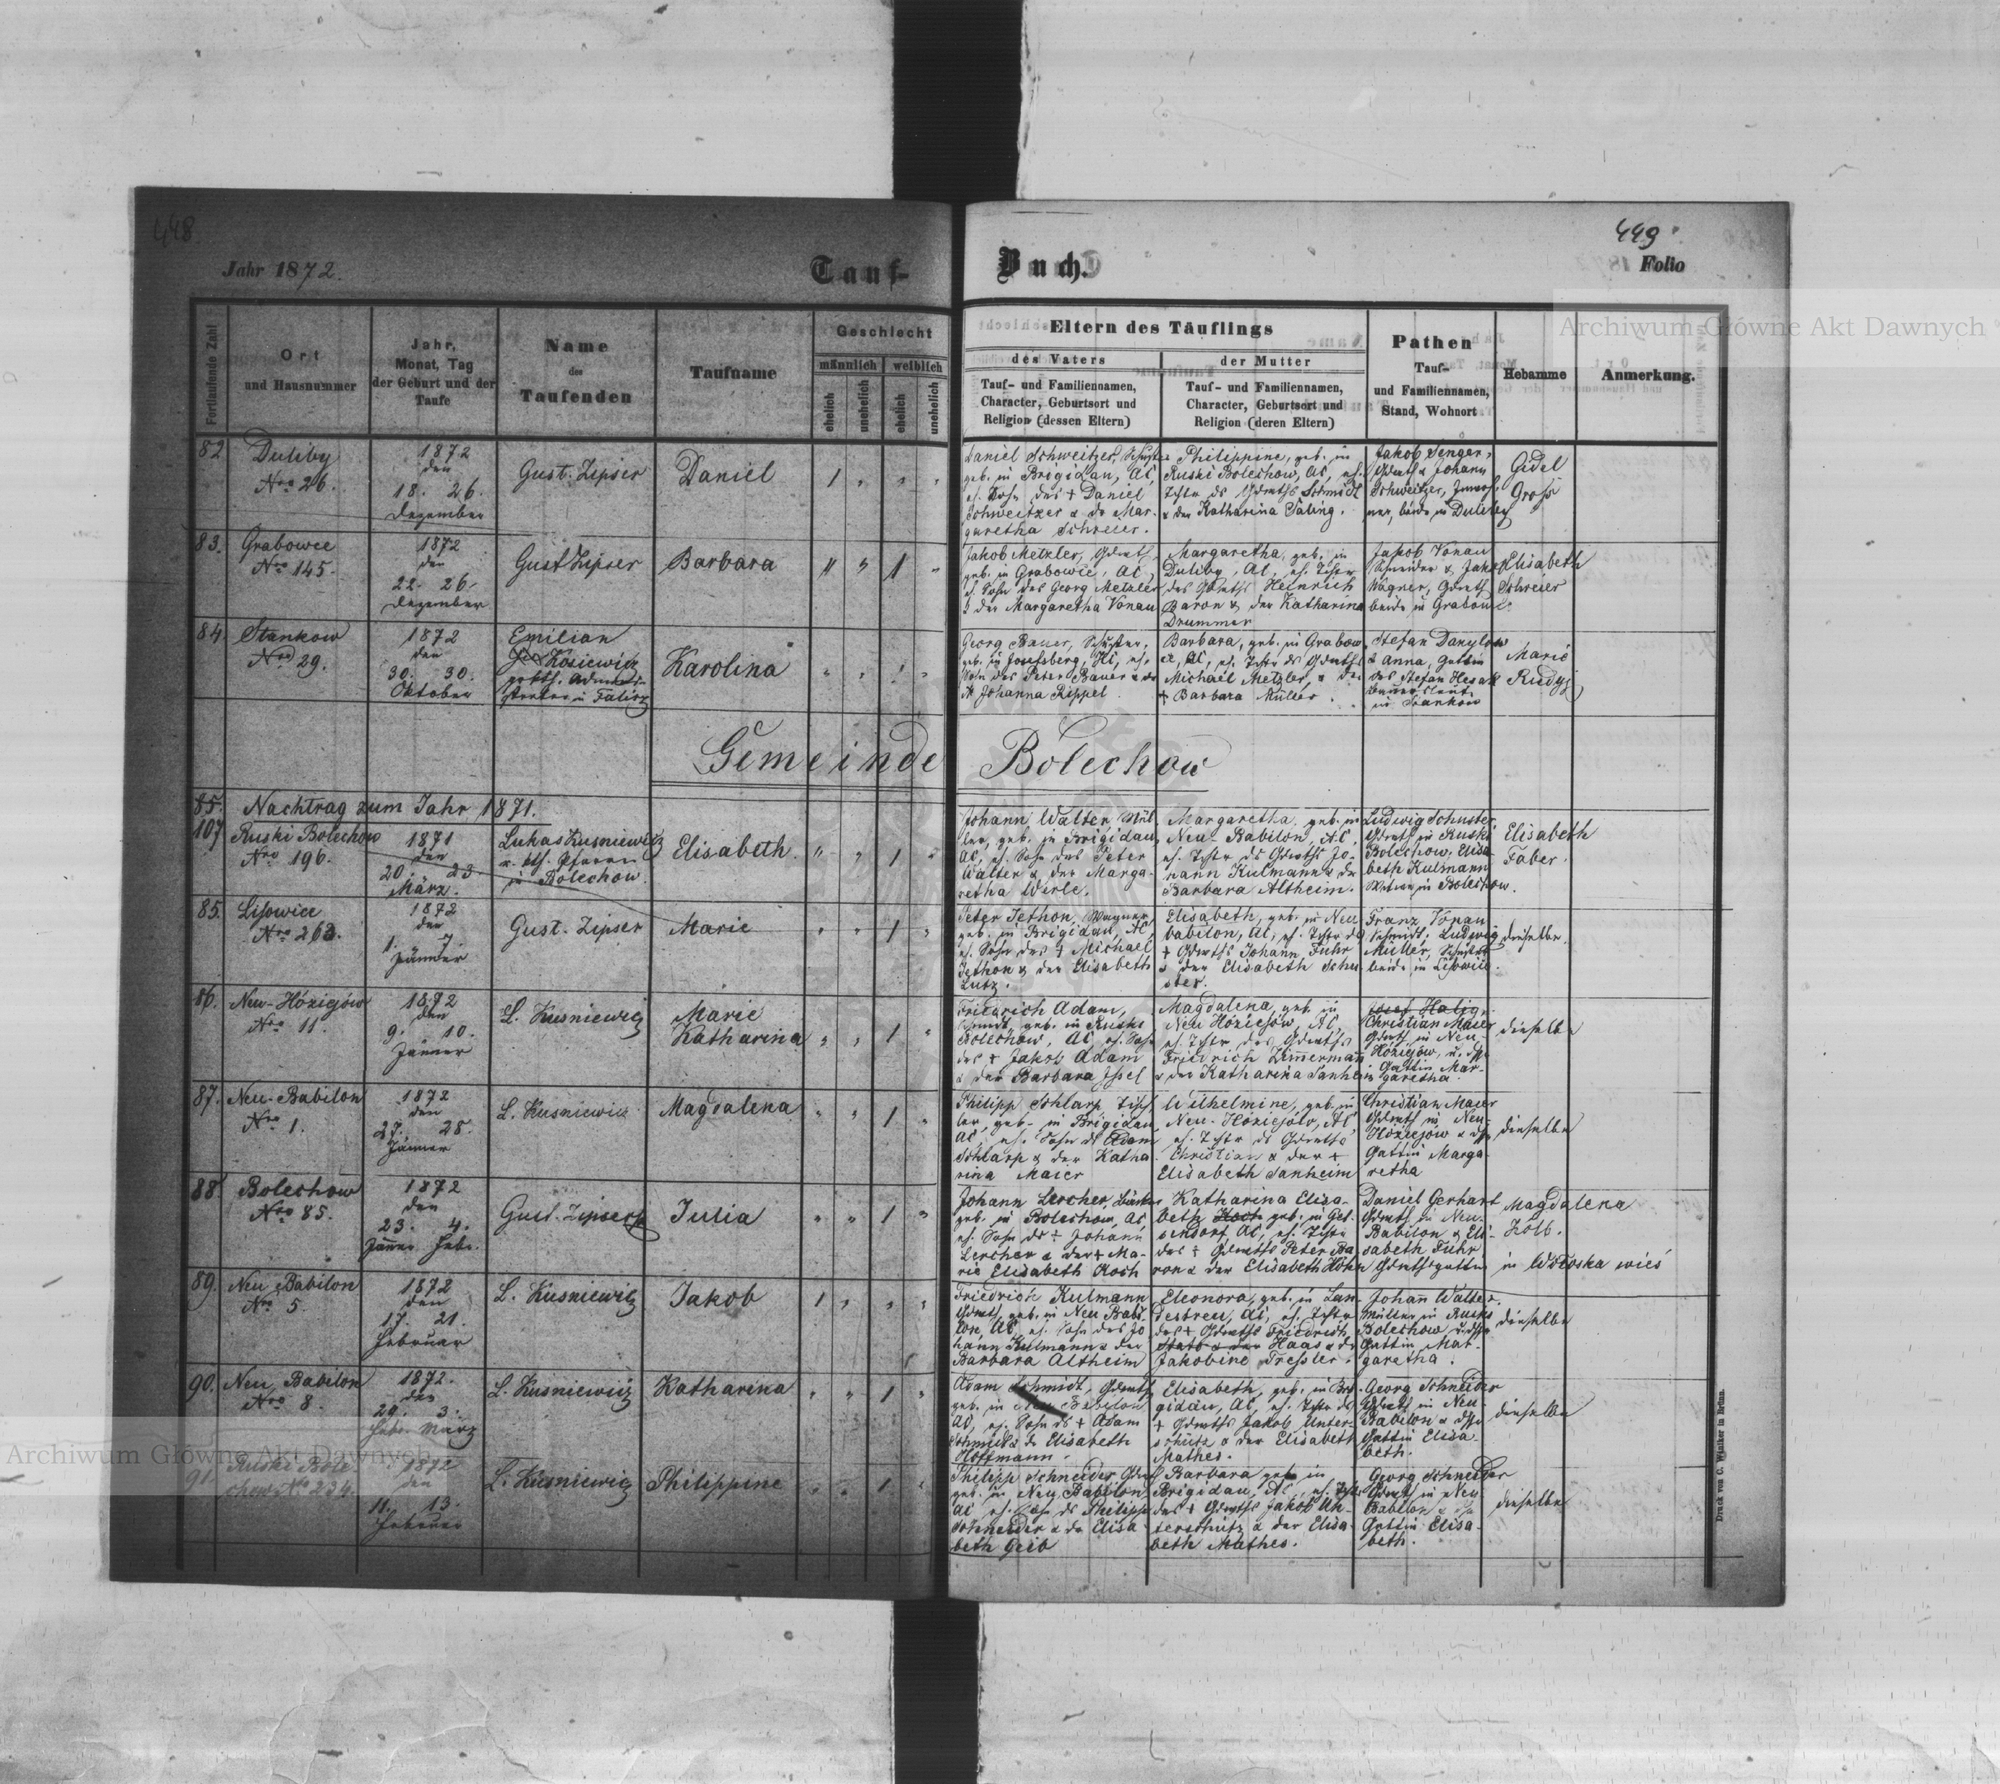 448.
449.
Jahr 1872.
Tauf-Buch.
Folio
Archiwum Główne Akt Dawnych
Fortlaufende Zahl
Ort
und Hausnummer
Jahr,
Monat, Tag
der Geburt und der
Taufe
Name
des
Taufenden
Taufname
Geschlecht
männlich
weiblich
ehelich
unehelich
ehelich
unehelich
Eltern des Täuflings
des Vaters
Tauf- und Familiennamen,
Character, Geburtsort und
Religion (dessen Eltern)
der Mutter
Tauf- und Familiennamen,
Character, Geburtsort und
Religion (deren Eltern)
Pathen
Tauf-
und Familiennamen,
Stand, Wohnort
Hebamme
Anmerkung.
82
Duliby
Nro 26.
1872
den
18. 26.
Dezember
Gust. Zipser
Daniel
1 " " "
Daniel Schweitzer, Schuster
geb. in Brigidau, AC,
eh. Sohn des + Daniel
Schweitzer & der Mar-
garetha Schreier.
Philippine, geb. in
Ruski Bolechow, AC, eh.
Tchtr ds Gdmths Schmidt
& der Katharina Saling.
Jakob Senger,
Gdmth & Johann
Schweitzer,
beide in Duliby
Gidel
Groß
83.
Grabowce
Nro 145.
1872
den
22. 26.
Dezember
Gust Zipser
Barbara
" " 1 "
Jakob Metzler, Gdmth,
geb. in Grabowce, AC,
eh. Sohn des Georg Metzler
& der Margaretha Vonau
Margaretha, geb. in
Duliby, AC, eh. Tchtr
des Gdmths Heinrich
Baron & der Katharina
Drummer
Jakob Vonau
Schneider & Jakob
Wagner, Gdmth
beide in Grabowce.
Elisabeth
Schreier
84.
Stankow
Nro 29.
1872
den
30. 30.
Oktober
Emilian
Kosiewicz
grkth. Admini-
strator in Falisz
Karolina
" " " "
Georg Bauer, Schuster,
geb. in Josefsberg, HC, eh.
Sohn des Peter Bauer & der
+ Johanna Rippel
Barbara, geb. in Grabow-
ce, AC, eh. Tchtr ds Gdmths
Michael Metzler & der
+ Barbara Müller.
Stefan Danylow
& Anna, Gattin
des Stefan Hesak
Bauersleute
in Stankow
Marie
Rudyj
Gemeinde Bolechow
85. Nachtrag zum Jahr 1871.
107
Ruski Bolechow
Nro 196.
1871
den
20. 23.
März.
Lukas Kusniewicz
r. kth. Pfarrer
in Bolechow.
Elisabeth
" " 1 "
Johann Walter Mül-
ler, geb. in Brigidau,
AC, eh. Sohn des Peter
Walter & der Marga-
retha Werle.
Margaretha, geb. in
Neu Babilon, AC,
eh. Tchtr ds Gdmths Jo-
hann Kulmann & der
Barbara Altheim.
Ludwig Schuster
Gdmth in Ruski
Bolechow, Elisa-
beth Kulmann
Witwe in Bolechow.
Elisabeth
Faber.
85.
Lisowice
Nro 263.
1872
den
1. 7.
Jänner
Gust. Zipser
Marie
" " 1 "
Peter Jethon, Wagner,
geb. in Brigidau, AC,
eh. Sohn des + Michael
Jethon & der Elisabeth
Lutz.
Elisabeth, geb. in Neu
babilon, AC, eh. Tchtr ds
+ Gdmths Johann Fuhr
& der Elisabeth Schu-
ster.
Franz Vonau
Schmidt, Ludwig
Müller, Schuster
beide in Lisowice.
dieselbe.
86.
Neu-Hóziejów
Nro 11.
1872
den
9. 10.
Jänner
L. Kusniewicz
Marie
Katharina
" " 1 "
Friedrich Adam,
Schmidt, geb. in Ruski
Bolechow, AC, eh. Sohn
des + Jakob Adam
& der Barbara Issel
Magdalena, geb. in
Neu Hóziejów, AC,
eh. Tchtr des Gdmths
Friedrich Zimmermann
& der Katharina Sanheim
Josef Halig
Christian Maier
Gdmth in Neu-
Hóziejów, u. dsse
Gattin Mar-
garetha.
dieselbe
87.
Neu-Babilon
Nro 1.
1872
den
27. 28.
Jänner
L. Kusniewicz
Magdalena
" " 1 "
Philipp Schlarp Tisch-
ler, geb. in Brigidau,
AC, eh. Sohn ds Adam
Schlarp & der Katha-
rina Maier
Wilhelmine, geb. in
Neu-Hóziejów, AC,
eh. Tchtr ds Gdmths
Christian & der +
Elisabeth Sanheim
Christian Maier
Gdmth in Neu-
Hóziejów & dsse
Gattin Marga-
retha
dieselbe
88
Bolechow
Nro 85.
1872
den
23. 4.
Jänner Febr.
Gust. Zipser
Julia
" " 1 "
Johann Lercher, Bäcker
geb. in Bolechow, AC,
eh. Sohn ds + Johann
Lercher & der + Ma-
rie Elisabeth Koch
Katharina Elisa-
beth Koch geb. in Gel-
sendorf AC, eh. Tchtr
des + Gdmths Peter Ba-
ron & der Elisabeth Höhn
Daniel Gerhart
Gdmth in Neu-
Babilon & Eli-
sabeth Fuhr
Gdmthsgattin
Magdalena
Kolb.
in Wołoska wieś
89.
Neu Babilon
Nro 5.
1872
den
17. 21.
Februar
L. Kusniewicz
Jakob
1 " " "
Friedrich Kulmann
Gdmth, geb. in Neu Babi-
lon, AC, eh. Sohn des Jo-
hann Kulmann & der
Barbara Altheim
Eleonora, geb. in Lan-
destreu, AC, eh. Tchtr
des + Gdmths Friedrich
Haas & der
Jakobine Tressler.
Johann Walter,
Müller in Ruski
Bolechow u. dsse
Gattin Mar-
garetha.
dieselbe
90.
Neu Babilon
Nro 8.
1872.
den
29. 3.
Febr. März
L. Kusniewicz
Katharina
" " 1 "
Adam Schmidt, Gdmth,
geb. in Neu Babilon
AC, eh. Sohn ds + Adam
Schmidt & der Elisabeth
Hoffmann.
Elisabeth, geb. in Bri-
gidau, AC, eh. Tchtr ds
+ Gdmths Jakob Unter-
schütz & der Elisabeth
Mathes.
Georg Schneider
Gdmth in Neu-
Babilon & dsse
Gattin Elisa-
beth.
dieselbe
91.
Ruski Bole-
chow Nro 234.
1872
den
11. 13.
Februar
L. Kusniewicz
Philippine
" " 1 "
Philipp Schneider, Gdmth
geb. in Neu Babilon
AC eh. Sohn ds Philipp
Schneider & der Elisa-
beth Geib
Barbara geb. in
Brigidau, AC, eh. Tchtr
des + Gdmths Jakob Un-
terschütz & der Elisa-
beth Mathes.
Georg Schneider
Gdmth in Neu
Babilon & dsse
Gattin Elisa-
beth.
dieselbe
Druck von C. Winiker in Brünn.
Archiwum Główne Akt Dawnych